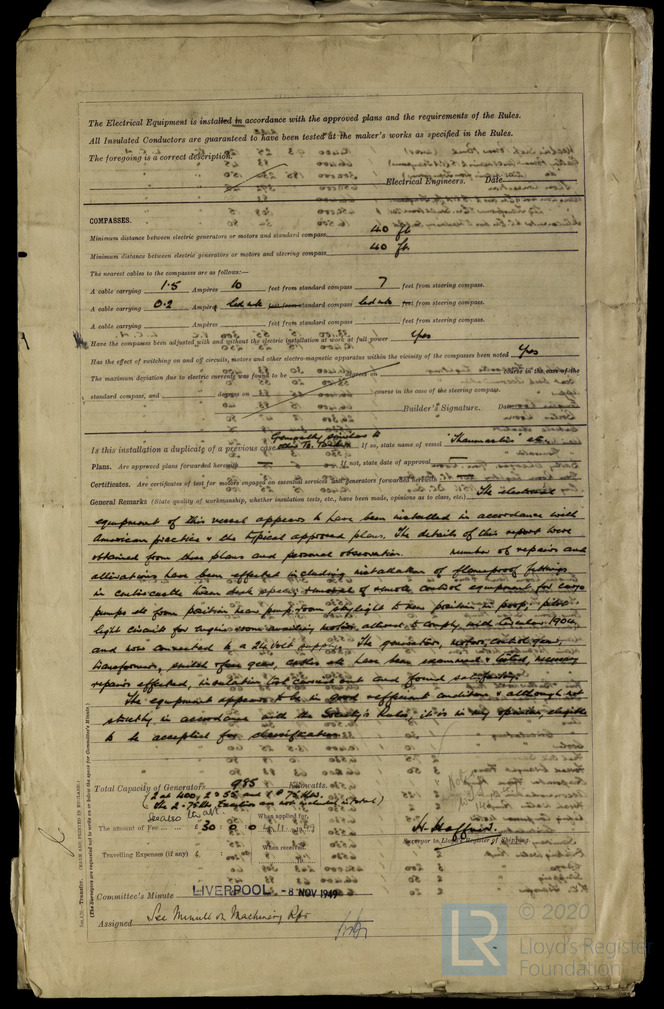 The Electrical Equipment is installed in accordance with the approved plans and the requirements of the Rules.
All Insulated Conductors are guaranteed to have been tested at the maker's works as specified in the Rules.
The foregoing is a correct description.
Electrical Engineers. Date
COMPASSES.
Minimum distance between electric generators or motors and standard compass 40 ft.
Minimum distance between electric generators or motors and steering compass 40 ft.
The nearest cables to the compasses are as follows:—
A cable carrying 1.5 Ampères 10 feet from standard compass 7 feet from steering compass.
A cable carrying 0.2 Ampères led into feet from standard compass led into feet from steering compass.
A cable carrying Ampères feet from standard compass feet from steering compass.
Have the compasses been adjusted with and without the electric installation at work at full power Yes
Has the effect of switching on and off circuits, motors and other electro-magnetic apparatus within the vicinity of the compasses been noted Yes
The maximum deviation due to electric currents was found to be degrees on course in the case of the
standard compass, and degrees on course in the case of the steering compass.
Builder's Signature. Date
Generally similar to
Is this installation a duplicate of a previous case If so, state name of vessel etc.
Plans. Are approved plans forwarded herewith If not, state date of approval
Certificates. Are certificates of test for motors engaged on essential services and generators forwarded herewith
General Remarks (State quality of workmanship, whether insulation tests, etc., have been made, opinions as to class, etc.) The electrical
equipment of this vessel appears to have been installed in accordance with
American practice & the typical approved plans. The details of this report were
obtained from these plans and personal observation. number of repairs and
alterations have been effected including installation of flameproof fittings
in centrecastle tween deck space, removal of remote control equipment for cargo
pumps etc from position near pump room skylight to new position in poop, pilot
light circuit for engine room to comply with Circular 1904
and now connected to a 24 Volt supply. The generators, motors, control gear,
transformers, switch & fuse gear, cables etc have been examined & tested, necessary
repairs effected, insulation test carried out and found satisfactory.
The equipment appears to be in good & efficient condition & although not
strictly in accordance with the Society's Rules, it is in my opinion, eligible
to be accepted for classification.
Total Capacity of Generators 985 Kilowatts.
(2 at 400, 2 @ 55 and 1 @ 75 Kw.
The 2 - 75 Kw Exciters are not included in total)
See also
When applied for,
The amount of Fee £ 30 : 0 : 0
When received,
Travelling Expenses (if any) £
Surveyor to Lloyd's Register of Shipping.
Committee's Minute LIVERPOOL - 8 NOV 1949
Assigned See Minute on Machinery Rpt
Transfer. (MADE AND PRINTED IN ENGLAND.)
(The Surveyors are requested not to write on or below the space for Committee's Minute.)
LR
© 2020
Lloyd's Register
Foundation